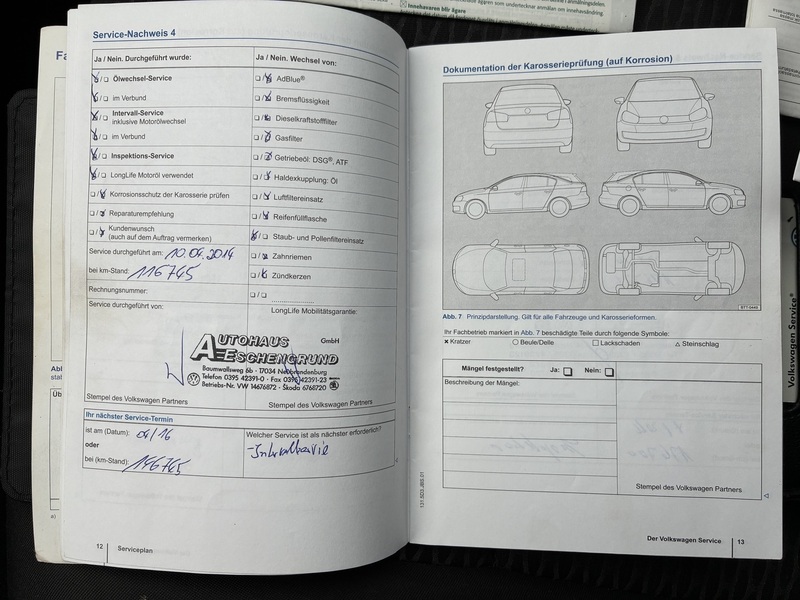 ägaren som undertecknar anmälan om innehavsändring.
Innehavaren blir ägare
Fa
Service-Nachweis 4
Ja / Nein. Durchgeführt wurde:
Ja / Nein. Wechsel von:
Ölwechsel-Service
im Verbund
Intervall-Service
inklusive Motorölwechsel
im Verbund
Inspektions-Service
LongLife Motoröl verwendet
Korrosionsschutz der Karosserie prüfen
Reparaturempfehlung
Kundenwunsch
(auch auf dem Auftrag vermerken)
AdBlue®
Bremsflüssigkeit
Dieselkraftstofffilter
Gasfilter
Getriebeöl: DSG®, ATF
Haldexkupplung: Öl
Luftfiltereinsatz
Reifenfüllflasche
Staub- und Pollenfiltereinsatz
Zahnriemen
Zündkerzen
Service durchgeführt am: 10.04.2014
bei km-Stand: 116745
Rechnungsnummer:
Service durchgeführt von:
LongLife Mobilitätsgarantie:
AUTOHAUS GmbH
AESCHENGRUND
Baumwallsweg 6b · 17034 Neubrandenburg
Telefon 0395 42391-0 · Fax 0395 42391-23
Betriebs-Nr. VW 14676872 · Škoda 6768720
Stempel des Volkswagen Partners
Stempel des Volkswagen Partners
Ihr nächster Service-Termin
ist am (Datum): 04/16
oder
bei (km-Stand): 146745
Welcher Service ist als nächster erforderlich?
12
Serviceplan
Dokumentation der Karosserieprüfung (auf Korrosion)
B7T-0446
Abb. 7 Prinzipdarstellung. Gilt für alle Fahrzeuge und Karosserieformen.
Ihr Fachbetrieb markiert in Abb. 7 beschädigte Teile durch folgende Symbole:
× Kratzer ○ Beule/Delle □ Lackschaden △ Steinschlag
Mängel festgestellt? Ja: Nein:
Beschreibung der Mängel:
Stempel des Volkswagen Partners
131.5D3.JBS.01
Der Volkswagen Service
13
Volkswagen Service®